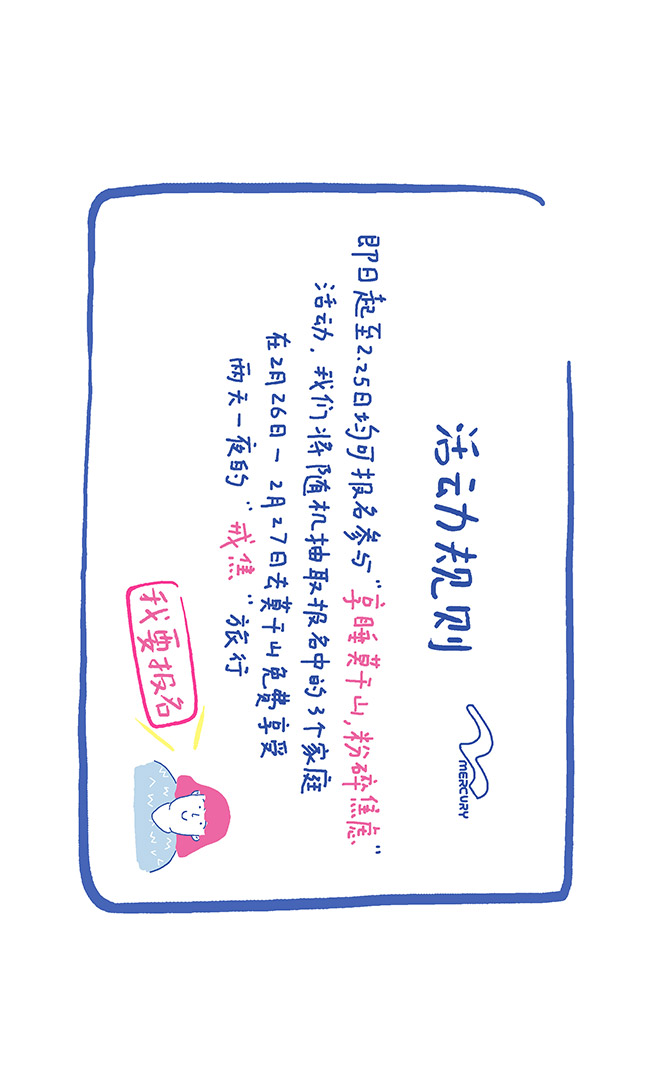 活动规则
MERCURY
即日起至2.25日均可报名参与“享睡莫干山,粉碎焦虑”
活动，我们将随机抽取报名中的3个家庭
在2月26日－2月27日去莫干山免费享受
两天一夜的“戒焦”旅行
我要报名